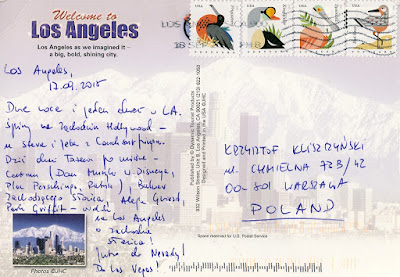 Welcome to
Los Angeles
Los Angeles as we imagined it –
a big, bold,
shining city.
Los Angeles,
17.09.2015
Dwie noce i jeden dzień w LA.
Śpimy na Zachodnim Hollywood –
u Steve i Jeka z Couchsurfingu.
Dziś dzień Tasera po mieście –
Centrum (Dom Muzyki W. Disneya,
Plac Pershinga, Ratusz), Bulwar
Zachodzącego Słońca, Aleja Gwiazd,
Park Griffith – widok
na Los Angeles
o zachodzie
słońca!
Jutro do Nevady!
Do Las Vegas!
Photos ©JHC
Published by © Dynamic Tourist Products
832 Wilson Street, Unit B, Los Angeles, CA 90021 (213) 622-1059
Designed and Printed in the USA ©JHC
LOS ANGELES
18 SEP
KRZYSZTOF KLISZCZYŃSKI
ul. CHMIELNA 73B/42
00-801 WARSZAWA
POLAND
Space reserved for U.S. Postal Service